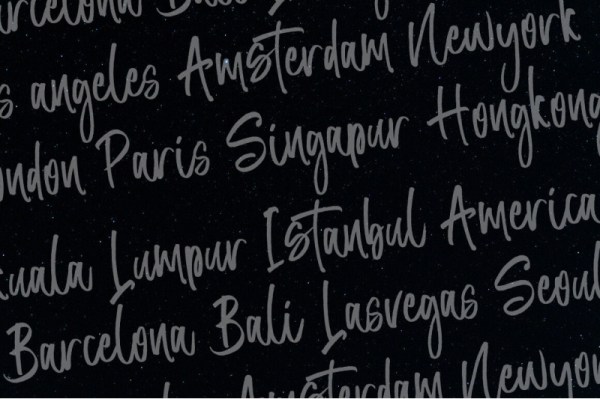 Barcelona Bali
s angeles Amsterdam Newyork
ondon Paris Singapur Hongkong
kuala Lumpur Istanbul America
Barcelona Bali Lasvegas Seoul
Amsterdam Newyor